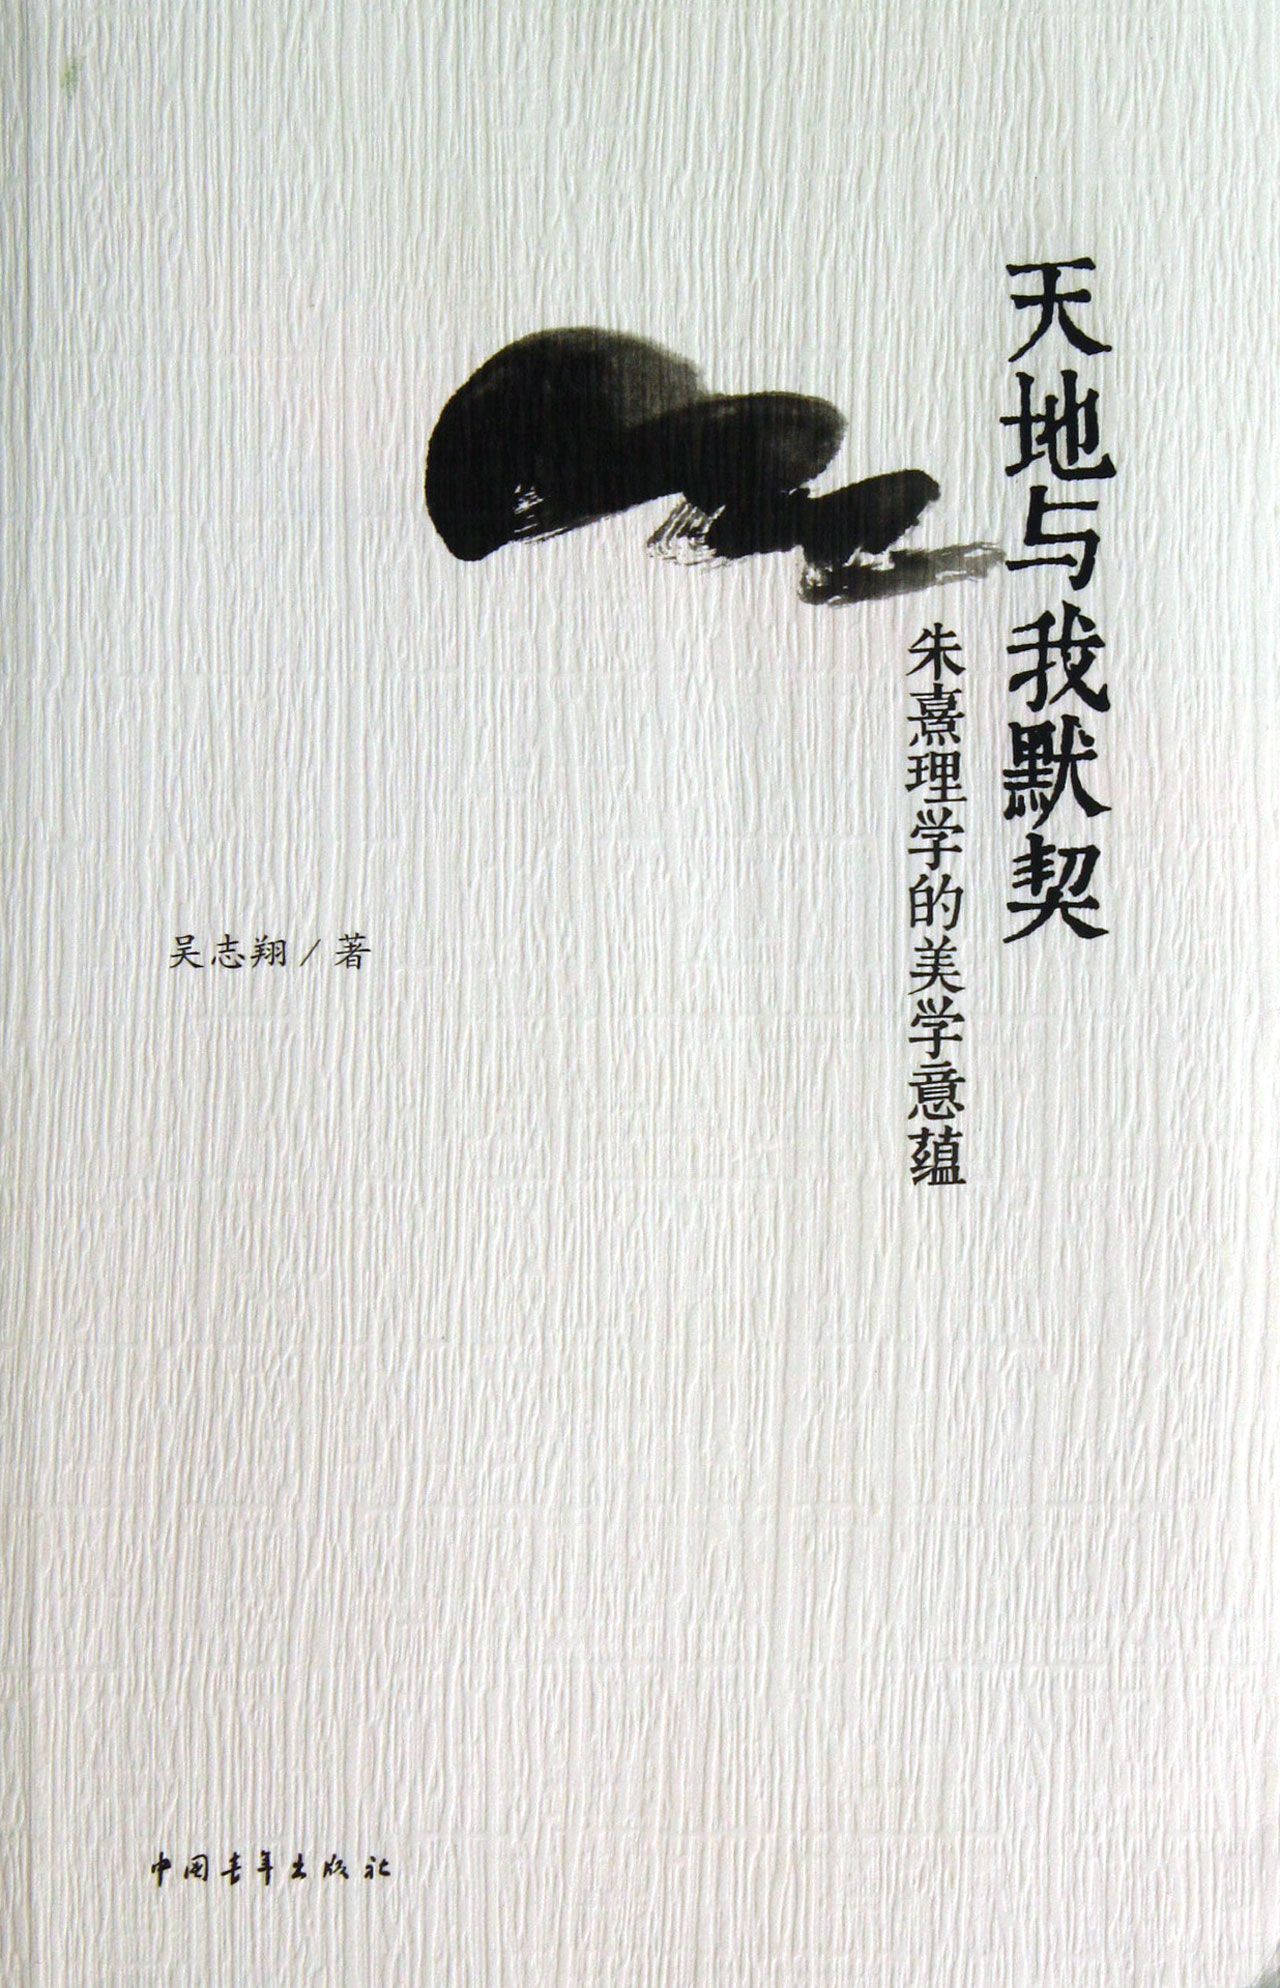 天地与我默契
朱熹理学的美学意蕴
吴志翔/著
中国青年出版社